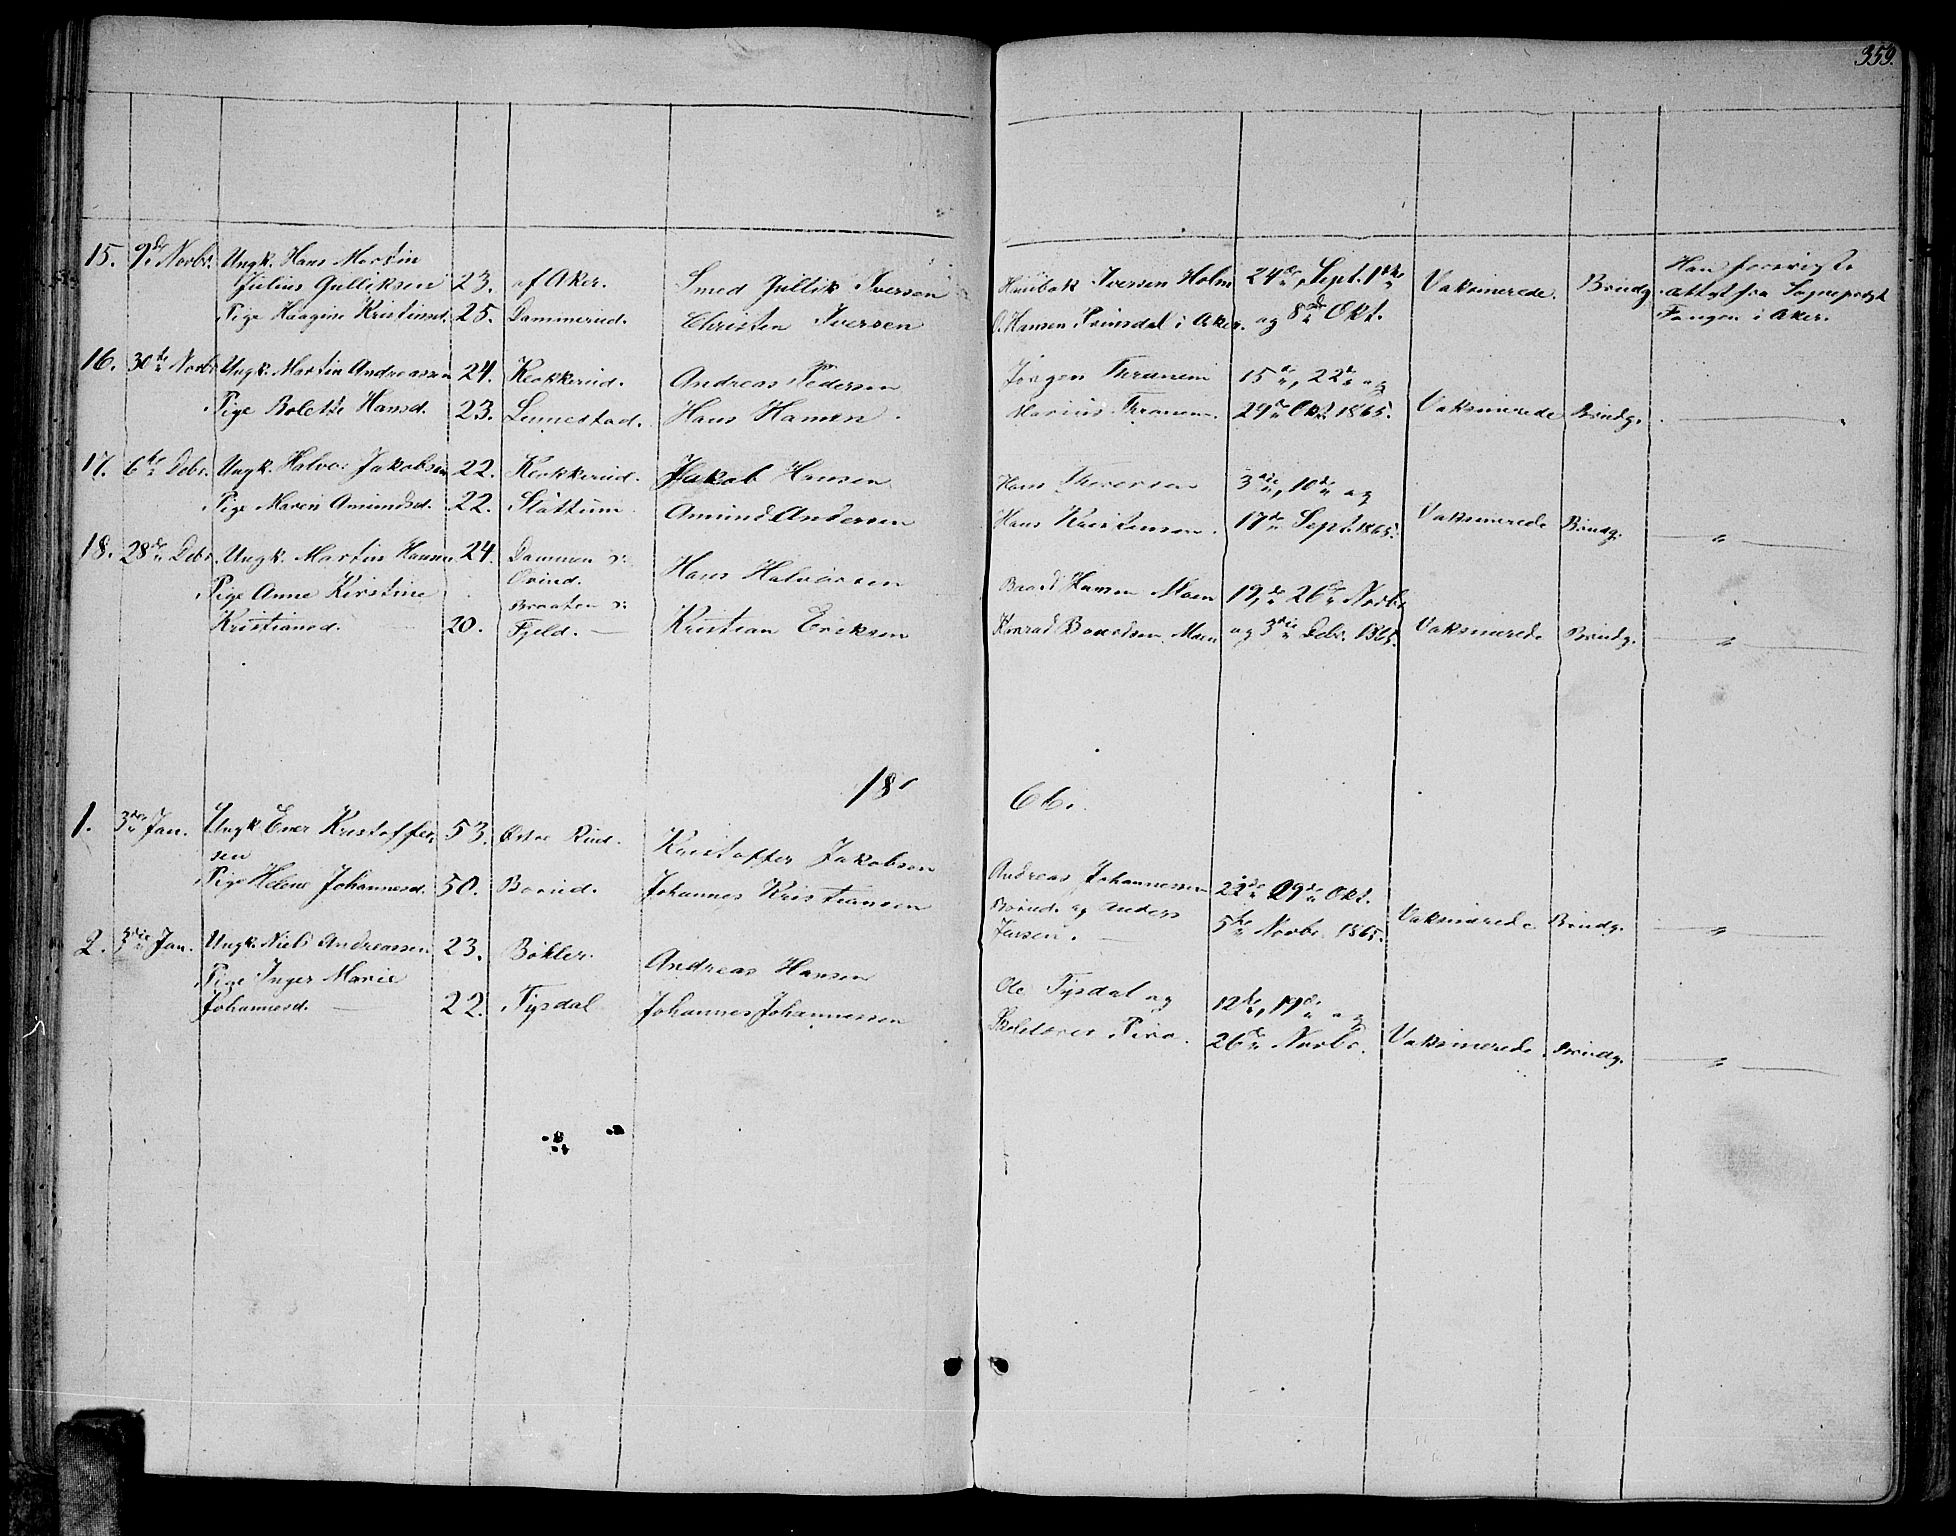 359.
15. 9de Novbr. Ungk. Hans Martin
Julius Gulliksen 23. af Aker. Smed Gullik Iversen
Pige Haagine Kristiansd. 25. Dammerud. Christen Iversen
Iversen Holm 24de Sept. 1ste
O. Hansen Prinsdal i Aker. og 8de Okt.
Vaksinerede. Brudg.
Han foreviste
Attest fra Sogneprest
Fangen i Aker.
16. 30te Novbr. Ungk. Martin Andreassen 24. Krokkerud. Andreas Pedersen
Pige Bolette Hansd. 23. Lunnestad. Hans Hansen.
Jørgen Thranem 15de, 22de og
Marius Thranem. 29de Okt. 1865. Vaksinerede Brudg.
17. 6te Debr. Ungk. Halvor Jakobsen 22. Krokkerud. Jakob Hansen
Pige Maren Amundsd. 22. Slattum. Amund Andersen
Hans Thoresen 3die, 10de og
Hans Kristensen. 17de Sept. 1865. Vaksinerede Brudg. "
18. 28de Debr. Ungk. Martin Hansen 24. Dammen u:
Hans Halvorsen
Pige Anne Kirstine
Braaten u:
Kristiansd. 20. Fjeld. Kristian Eriksen
Baard Hansen Moen 19de, 26de Novbr.
Konrad Baardsen Moen og 3die Debr. 1865. Vaksinerede Brudg. "
18 66.
1. 3die Jan. Ungk. Ener Kristoffer 53. Østre Rud. Kristoffer Jakobsen
sen
Pige Helene Johannesd. 50. Borud. Johannes Kristiansen
Andreas Johannessen 22de 29de Okt.
Borud og Anders 5te Novbr. 1865. Vaksinerede Brudg. "
Jensen.
2. 3die Jan. Ungk. Niels Andreassen 23. Bøhler. Andreas Hansen
Pige Inger Marie
Johannesd. 22. Tysdal Johannes Johannessen
Ole Tysdal og 12te, 19de og
26de Novbr. Vaksinerede. Brudg. "